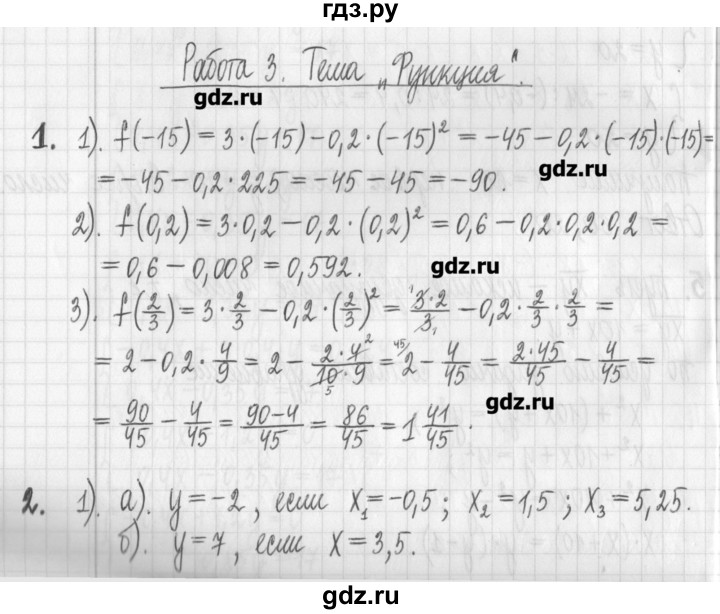 гдз.ру
Работа 3. Тема „Функция“.
gdz.ru
1. 1). f(−15) = 3·(−15) − 0,2·(−15)² = −45 − 0,2·(−15)·(−15) =
gdz.ru
= −45 − 0,2·225 = −45 − 45 = −90.
2). f(0,2) = 3·0,2 − 0,2·(0,2)² = 0,6 − 0,2·0,2·0,2 =
gdz.ru
= 0,6 − 0,008 = 0,592.
3). f(2/3) = 3·2/3 − 0,2·(2/3)² = 3·2/3 − 0,2·2/3·2/3 =
= 2 − 0,2·4/9 = 2 − 2·4/10·9 = 2 − 4/45 = 2·45/45 − 4/45 =
gdz.ru
= 90/45 − 4/45 = 90−4/45 = 86/45 = 1 41/45.
2. 1). а). y = −2, если x₁ = −0,5; x₂ = 1,5; x₃ = 5,25.
б). y = 7, если x = 3,5.
gdz.ru
gdz.ru